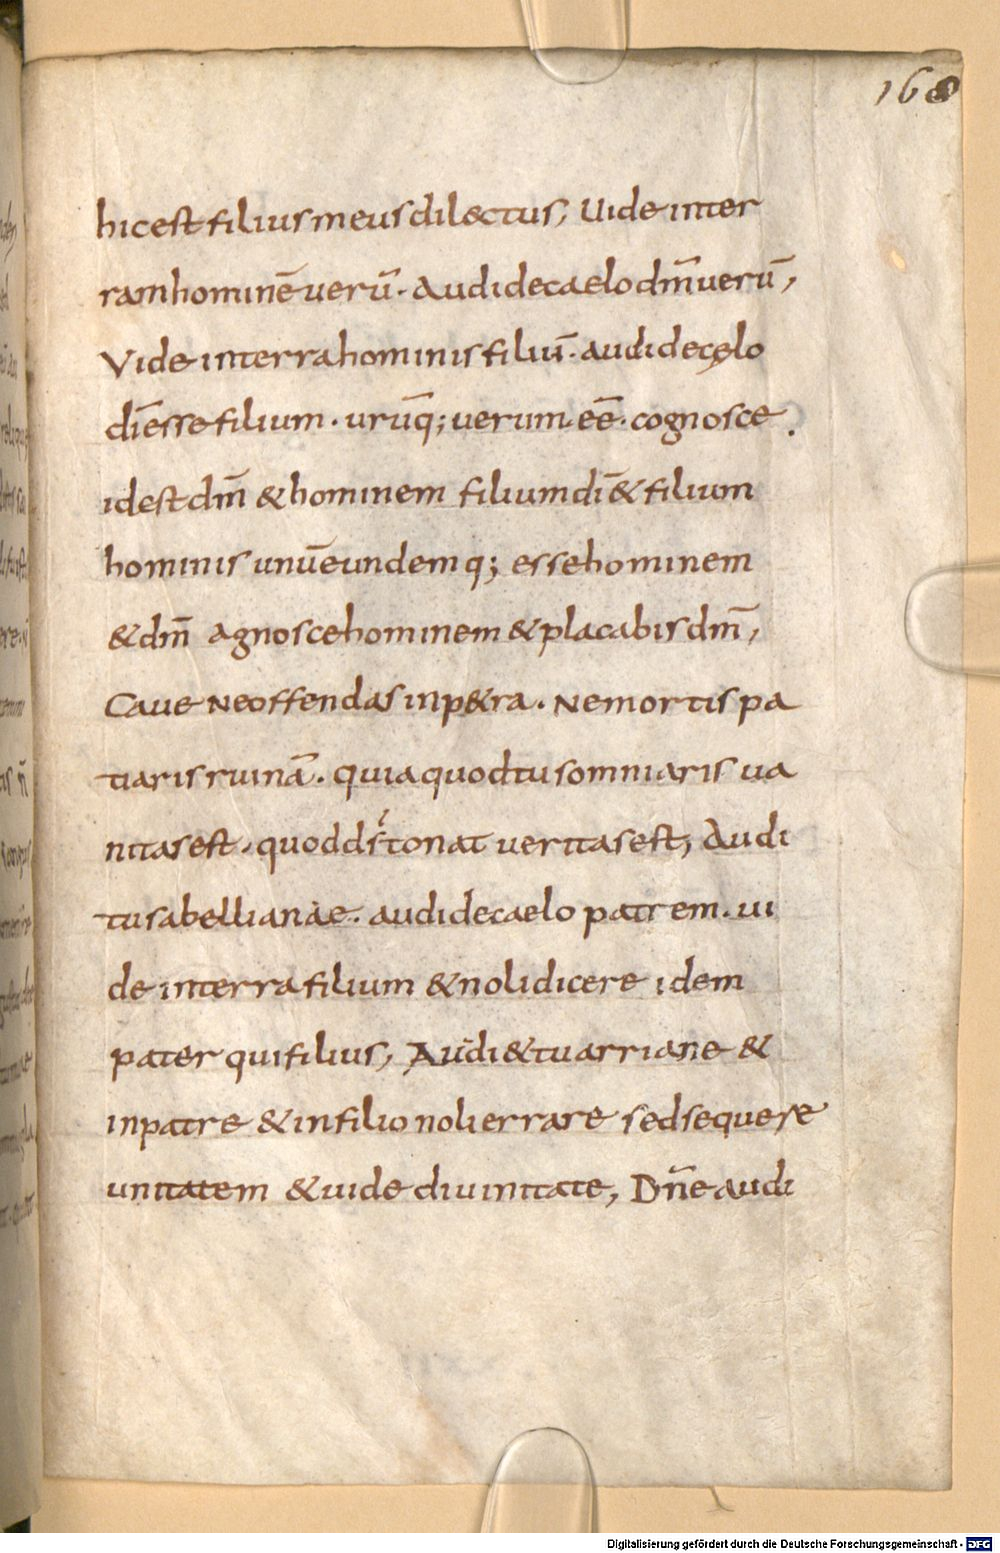 168
hic est filius meus dilectus, Uide inter
ram hominē uerū. Audi de caelo dm̄ uerū,
Vide in terra hominis filiū. audi de cęlo
dī esse filium. utrūq; uerum. eē. cognosce.
id est dm̄ & hominem filium dī & filium
hominis unū eundemq; esse hominem
& dm̄ Agnosce hominem & placabis dm̄,
Caue Ne offendas in p&ra. Ne mortis pa
tiaris ruinā. quia quod tu somniaris ua
nitas est. quod ds̄ tonat ueritas est, Audi
tu sabelliane. audi de caelo patrem. ui
de in terra filium & noli dicere idem
pater qui filius, Audi & tu arriane &
in patre & in filio noli errare sed sequere
unitatem & uide diuinitate, Dn̄e audi
Digitalisierung gefördert durch die Deutsche Forschungsgemeinschaft - DFG